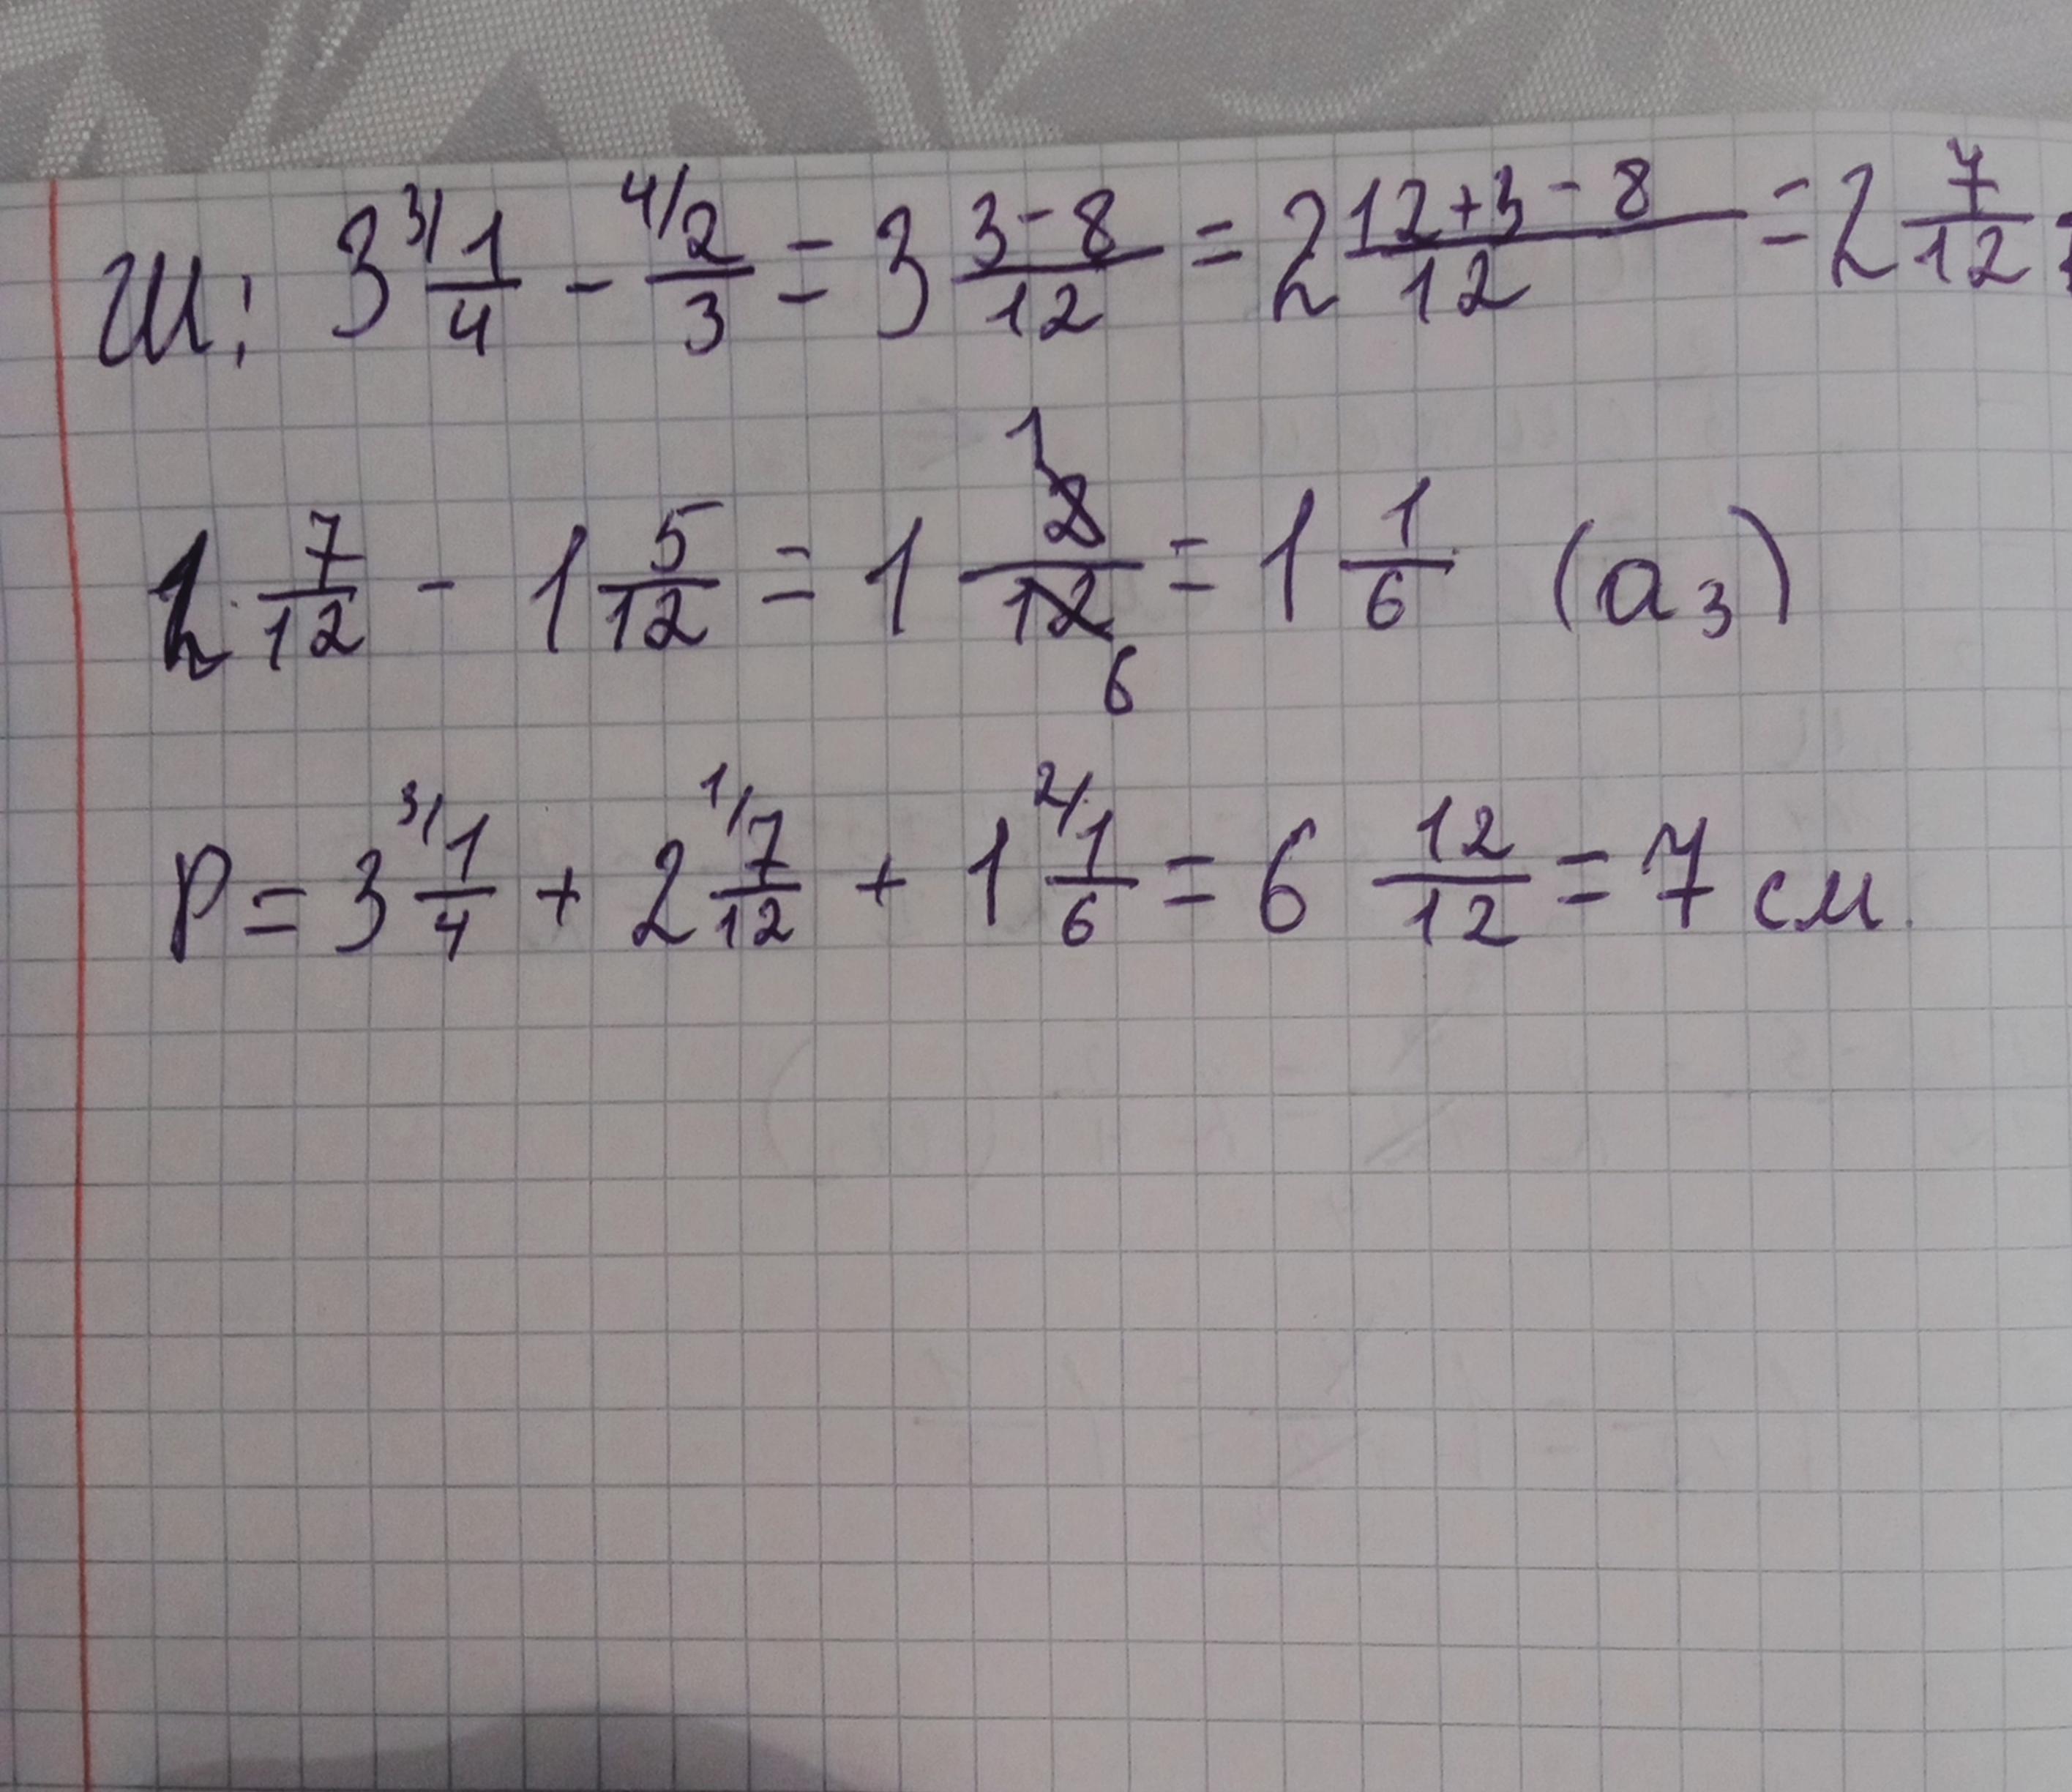 Ш: 3 ³/ 1/4 - ⁴/ 2/3 = 3 (3-8)/12 = 2 (12+3-8)/12 = 2 7/12
2 7/12 - 1 5/12 = 1 2/12 1 6 = 1 1/6 (a₃)
P = 3 ³/ 1/4 + 2 ¹/ 7/12 + 1 ²/ 1/6 = 6 12/12 = 7 см.